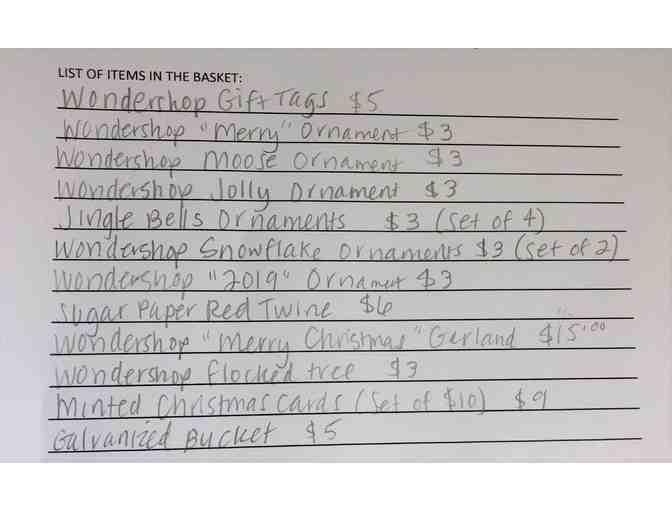 LIST OF ITEMS IN THE BASKET:
Wondershop Gift Tags $5
Wondershop "Merry" Ornament $3
Wondershop Moose Ornament $3
Wondershop Jolly Ornament $3
Jingle Bells Ornaments $3 (set of 4)
Wondershop Snowflake Ornaments $3 (set of 2)
Wondershop "2019" Ornamet $3
Sugar Paper Red Twine $6
Wondershop "Merry Christmas" Gerland $15.00
Wondershop flocked tree $3
Minted Christmas Cards (Set of $10) $9
Galvanized Bucket $5